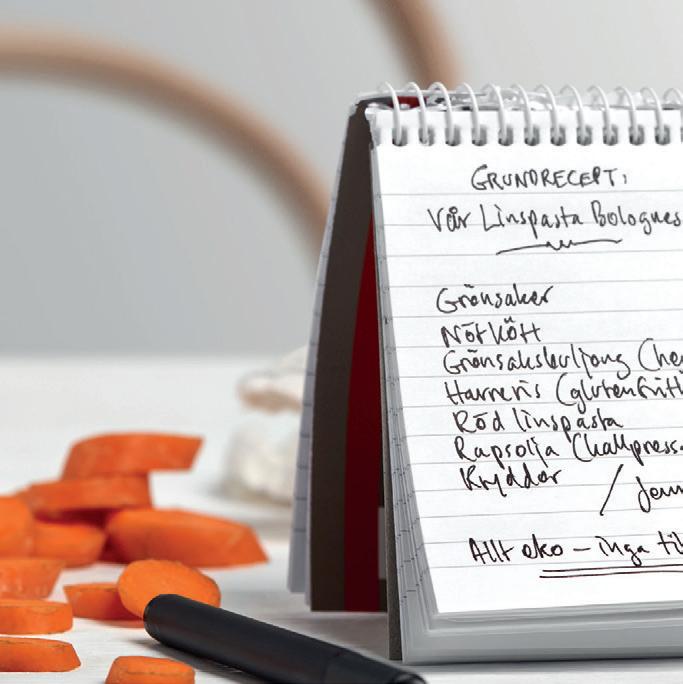 GRUNDRECEPT:
Vår Linspasta Bolognes
Grönsaker
Nötkött
Grönsaksbuljong (he
Havreris (glutenfritt
Röd linspasta
Rapsolja (kallpress
Kryddor
/ Jenn
Allt eko - inga til